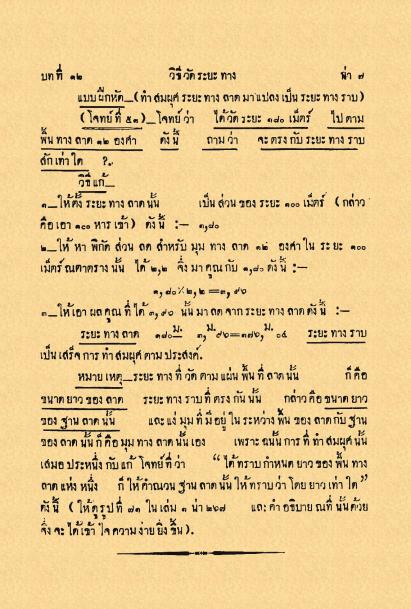 บทที่ ๑๒ วิธีวัดระยะทาง น่า ๗
แบบฝึกหัด_(ทำสมผุศระยะทางลาดมาแปลงเป็นระยะทางราบ)
(โจทย์ที่ ๕๓)_โจทย์ว่า ได้วัดระยะ ๑๘๐ เม็ตร์ ไปตาม
พื้นทางลาด ๑๒ องศา ดังนี้ ถามว่า จะตรงกับระยะทางราบ
สักเท่าใด ?.
วิธีแก้_
๑_ให้ตั้งระยะทางลาดนั้น เป็นส่วนของระยะ ๑๐๐ เม็ตร์ (กล่าว
คือเอา ๑๐๐ หารเข้า) ดังนี้ :— ๑,๘๐
๒_ให้หาพิกัดส่วนลดสำหรับมุมทางลาด ๑๒ องศาในระยะ ๑๐๐
เม็ตร์ณตาตรางนั้น ได้ ๒,๒ จึ่งมาคูณกับ ๑,๘๐ ดังนี้ :—
๑,๘๐ × ๒,๒ = ๓,๙๖
๓_ให้เอาผลคูณที่ได้ ๓,๙๖ นั้นมาลดจากระยะทางลาดดังนี้ :—
ระยะทางลาด ๑๘๐ม._๓,ม.๙๖=๑๗๖,ม.๐๔ ระยะทางราบ
เป็นเสร็จการทำสมผุศตามประสงค์.
หมายเหตุ_ระยะทางที่วัดตามแผ่นพื้นที่ลาดนั้น ก็คือ
ขนาดยาวของลาด ระยะทางราบที่ตรงกันนั้น กล่าวคือขนาดยาว
ของฐานลาดนั้น และแง่มุมที่มีอยู่ในระหว่างพื้นของลาดกับฐาน
ของลาดนั้นก็คือมุมทางลาดนั้นเอง เพราะฉนั้นการที่ทำสมผุศนั้น
เสมอประหนึ่งกับแก้โจทย์ที่ว่า “ ได้ทราบกำหนดยาวของพื้นทาง
ลาดแห่งหนึ่ง ก็ให้คำณวนฐานลาดนั้นให้ทราบว่าโดยยาวเท่าใด”
ดังนี้ (ให้ดูรูปที่ ๗๑ ในเล่ม ๑ น่า ๒๖๗ และคำอธิบายณที่นั้นด้วย
จึ่งจะได้เข้าใจความง่ายยิ่งขึ้น).